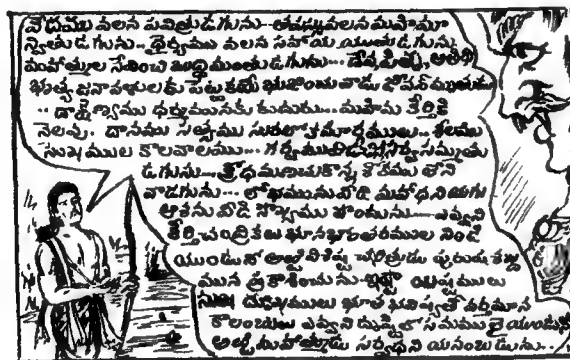 వేదము వలన పవిత్రుడగును... తపస్సు వలన మహిమా
న్వితుడగును... ధైర్యము వలన సహాయయుతుడగును
మహాత్ముల సేవించి బుద్ధిమంతుడగును... దేవ, పితృ, అతిథి
భృత్య జనావళులకు పెట్టకయే భుజించువాడు జీవన్మృతుడు
... దాక్షిణ్యము ధర్మమునకు కుదురు... మహిమ కీర్తికి
నెలవు. దానము సత్యము సురలోక మార్గములు... శీలము
సుఖముల కాలవాలము... గర్వము విడచిన సర్వసమ్మతు
డగును... క్రోధమణచుకొన్న శోకము లేని
వాడగును... లోభమును వీడి మహాధని యగు
ఆశను వీడి సౌఖ్యము పొందును.... ఎవ్వని
కీర్తిచంద్రికలు భూనభాంతరముల నిండి
యుండునో అట్టి విశిష్ట చరిత్రుడు పురుష శబ్ద
మున ప్రకాశించును...
సుఖ దుఃఖములు భూత భవిష్యత్ వర్తమాన
కాలంబులు ఎవ్వని దృష్టిలో సమములై యుండునో
అట్టి మహాత్ముడు సర్వధని యనంబడును...